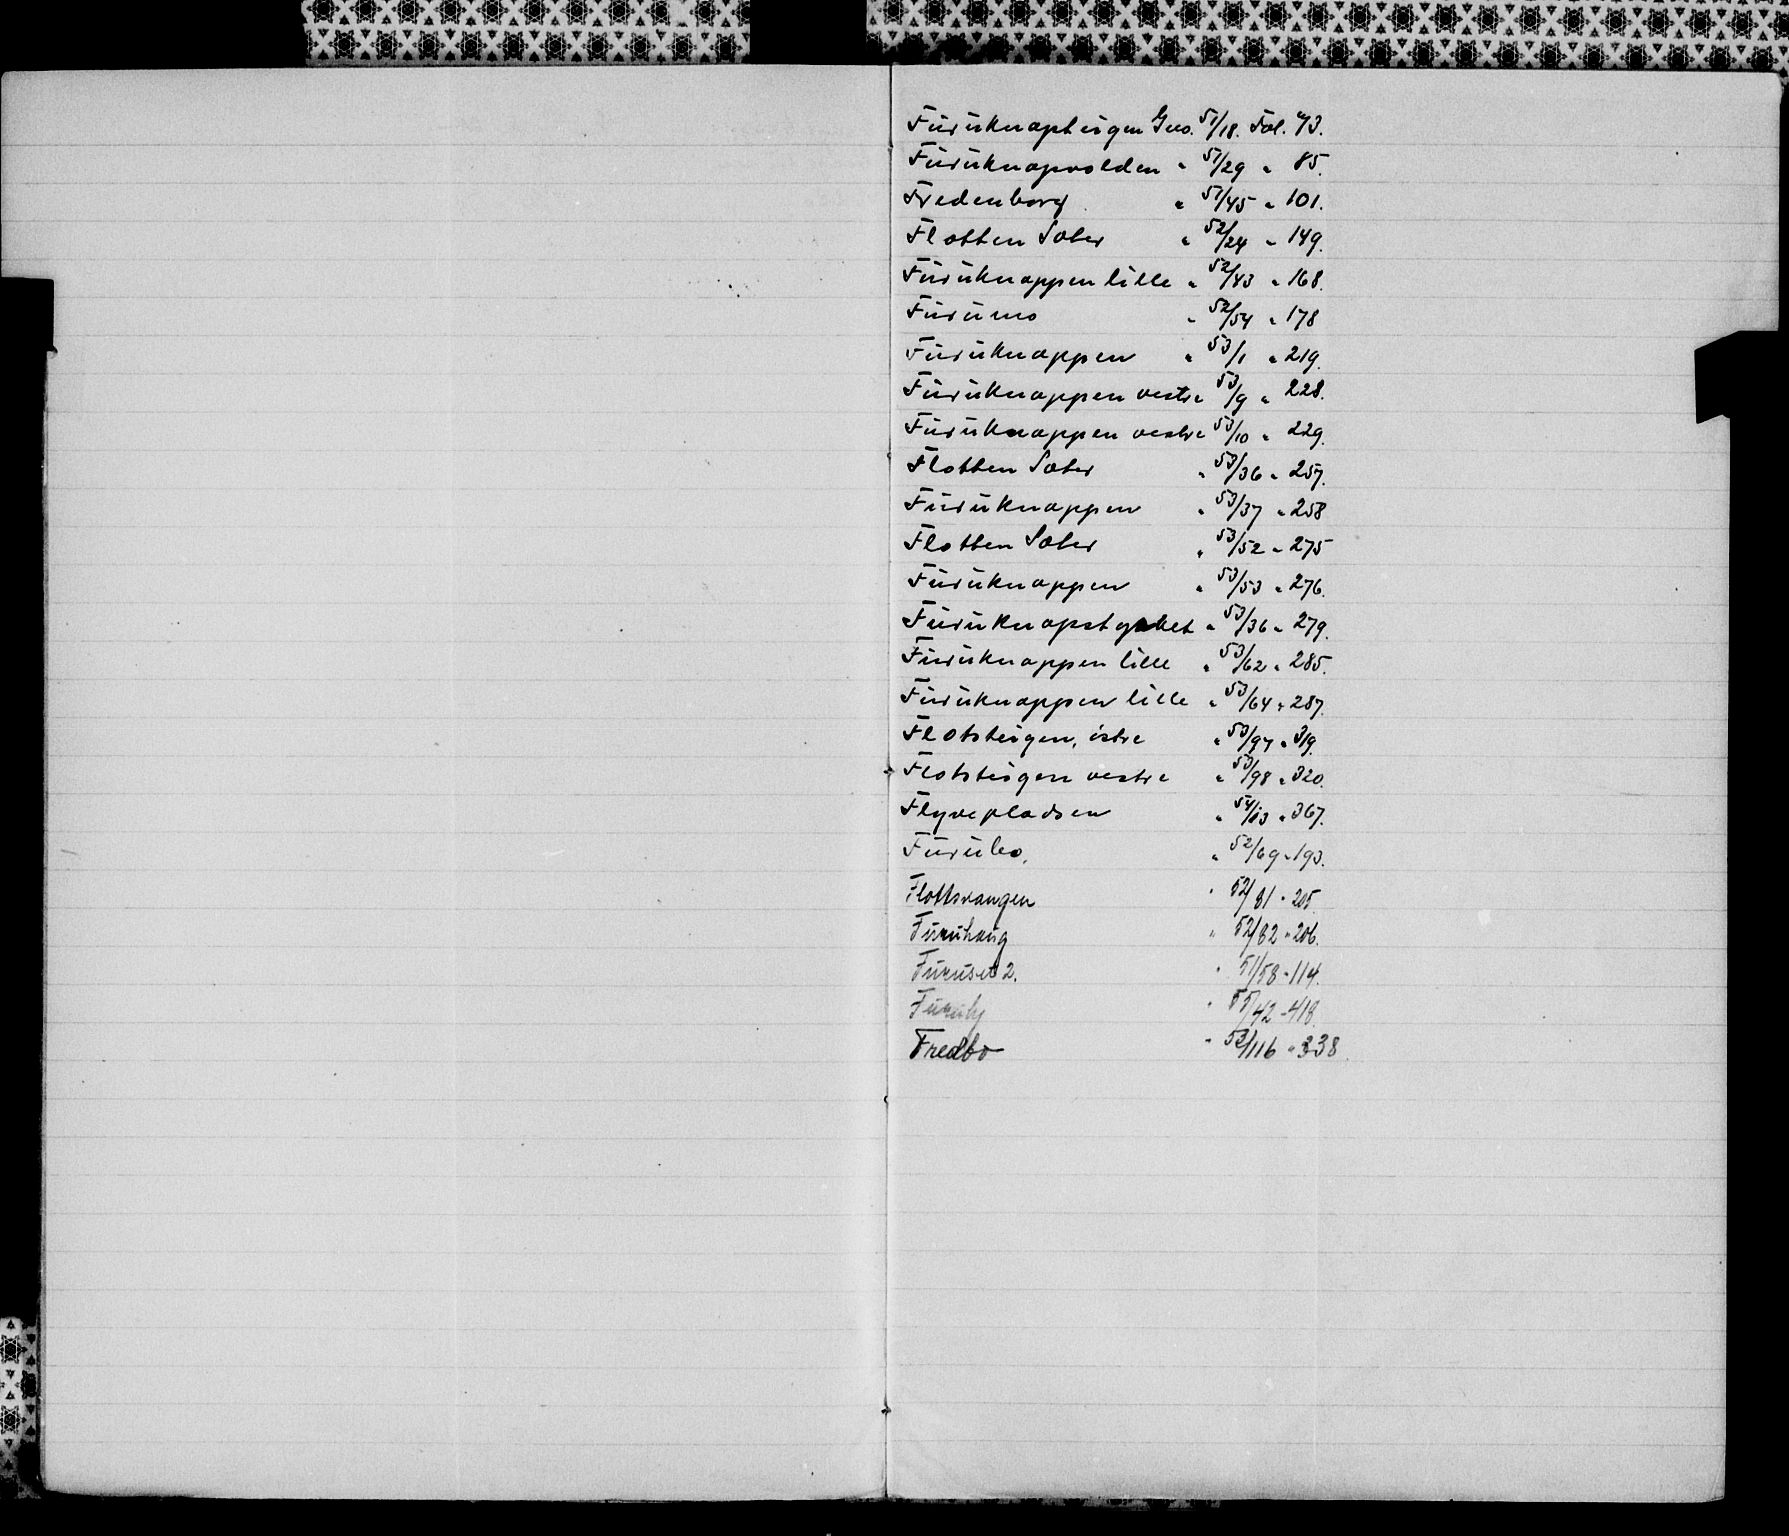 Furuknapteigen Gno. 51/18. Fol. 73.
Furuknapvolden " 51/29 " 85.
Fredenborg " 51/45 " 101.
Flotten Sæter " 52/24 " 149.
Furuknappen lille " 52/43 " 168.
Furumo " 52/54 " 178
Furuknappen " 53/1 " 219.
Furuknappen vestre 53/9 " 228.
Furuknappen vestre 53/10 " 229.
Flotten Sæter " 53/36 " 257.
Furuknappen " 53/37 " 258
Flotten Sæter " 53/52 " 275
Furuknappen " 53/53 " 276.
Furuknapstykket " 53/36 " 279.
Furuknappen lille " 53/62 " 285.
Furuknappen lille " 53/64 " 287.
Flotsteigen, östre " 53/97 " 319.
Flotsteigen vestre " 53/98 " 320.
Flyvepladsen " 54/13 " 367.
Furubo. " 52/69 " 193.
Flottsvangen " 52/81 " 205.
Furuhaug " 52/82 " 206.
Furuset 2. " 51/58 " 114.
Furuly " 55/42 " 418.
Fredbo " 53/116 " 338.